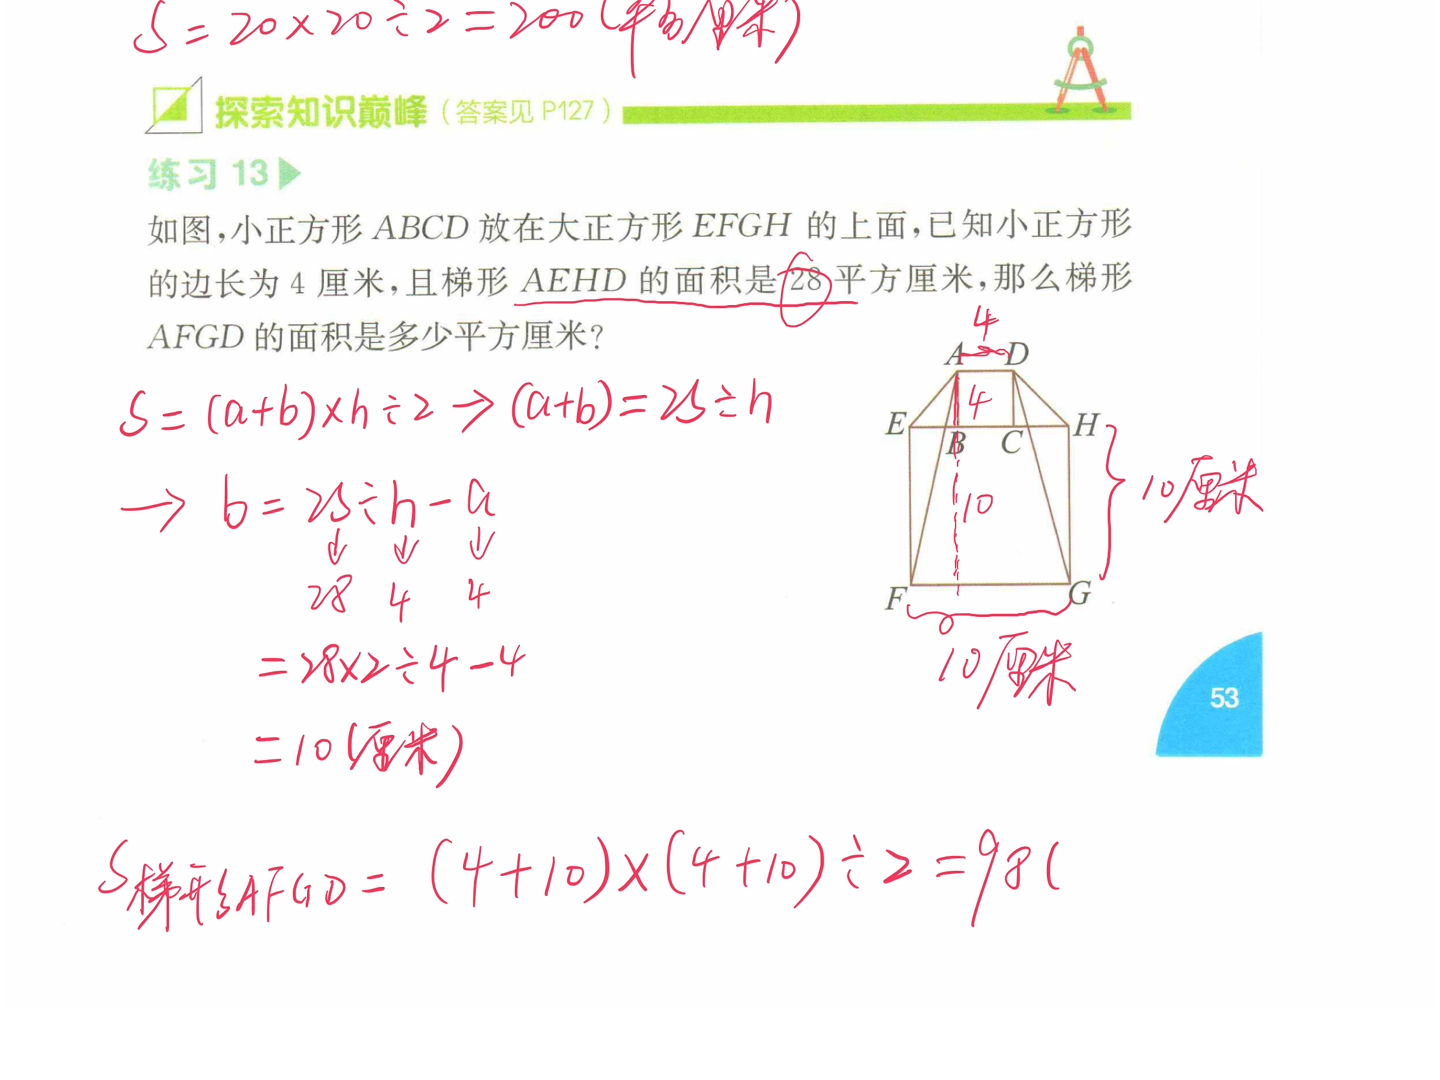 S=20×20÷2=200(平方厘米)
探索知识巅峰(答案见 P127)
练习 13
如图,小正方形 ABCD 放在大正方形 EFGH 的上面,已知小正方形
的边长为 4 厘米,且梯形 AEHD 的面积是 28 平方厘米,那么梯形
AFGD 的面积是多少平方厘米?
4
A D
4
E B C H
10
10厘米
F G
10厘米
S=(a+b)×h÷2→(a+b)=2S÷h
→ b=2S÷h-a
↓ ↓ ↓
28 4 4
=28×2÷4-4
=10(厘米)
53
S梯形AFGD=(4+10)×(4+10)÷2=98(